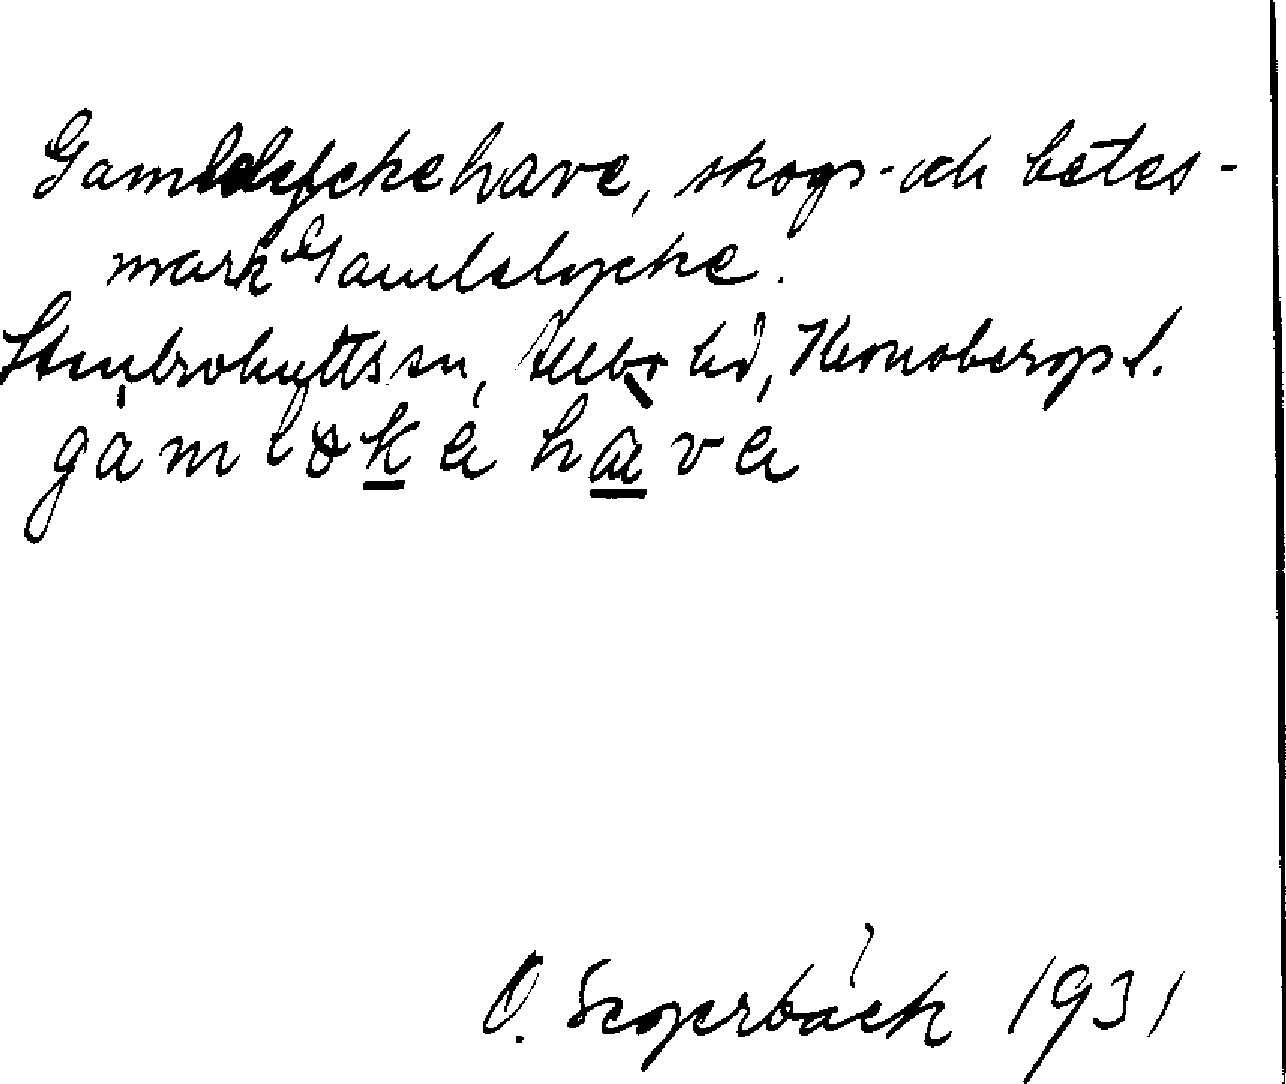 Gamlelyckehave, skogs- och betes-
mark Gamlelycke.
Stenbrohults sn, Allbo hd, Kronobergs l.
gamløkə havə
O. Segerbäck 1931